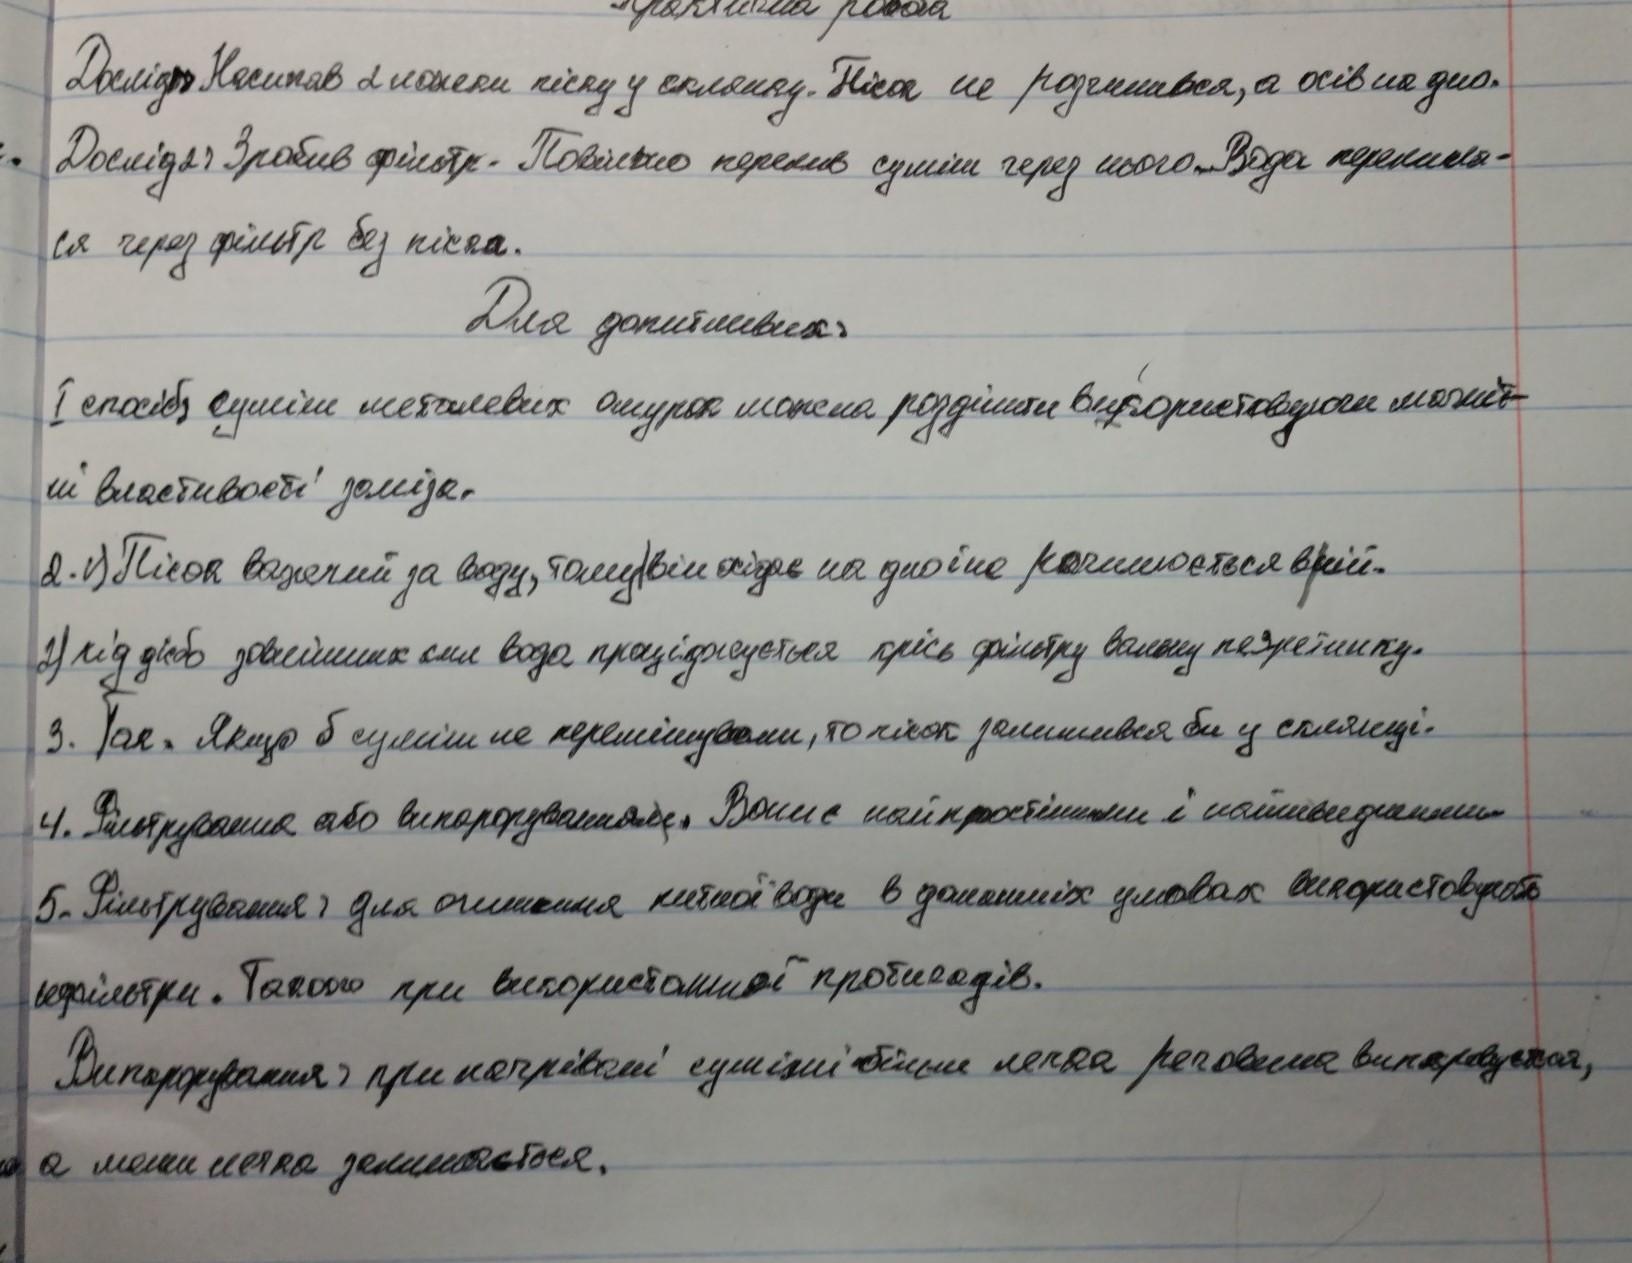 Практична робота
Дослід1: Насипав 2 ложки піску у склянку. Пісок не розчинився, а осів на дно.
Дослід2: Зробив фільтр. Повільно перелив суміш через нього. Вода перелила-
ся через фільтр без піска.
Для допитливих:
1 спосіб: суміш металевих ошурок можна розділити використовуючи магніт-
ні властивості заліза.
2. 1) Пісок важчий за воду, тому він осідає на дно і не рочинюється в ній.
2) під дією зовнішних сил вода проціджується крісь фільтру
3. Так. Якщо б суміш не перемішували, то пісок залишився би у склянці.
4. Фільтрування або випарорування. Вони є найпростішими і найшвидчими.
5. Фільтрування: для очишення питної води в домашніх умовах використовують
фільтри. Такого при використанної протигадів.
Випарорування: при нагрівані суміші більш легка речовина випаровується,
а менш легка залишається.